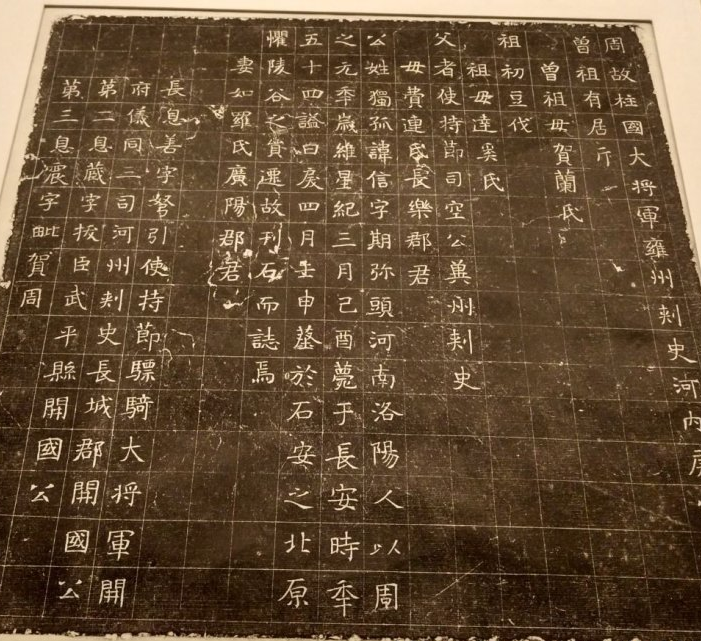 周故柱國大将軍雍州刺史河内戾
曾祖有居斤
曾祖母賀蘭氏
祖初豆伐
祖母達奚氏
父者使持節司空公冀州刺史
母費連氏長樂郡君
公姓獨孤諱信字期弥頭河南洛陽人以周
之元年歲維星紀三月己酉薨于長安時年
五十四謚曰戾四月壬申葬於石安之北原
懼陵谷之貿遷故刊石而誌焉
妻如羅氏廣陽郡君
長息善字弩引使持節驃騎大将軍開
府儀同三司河州刺史長城郡開國公
第二息藏字拔臣武平縣開國公
第三息震字毗賀周